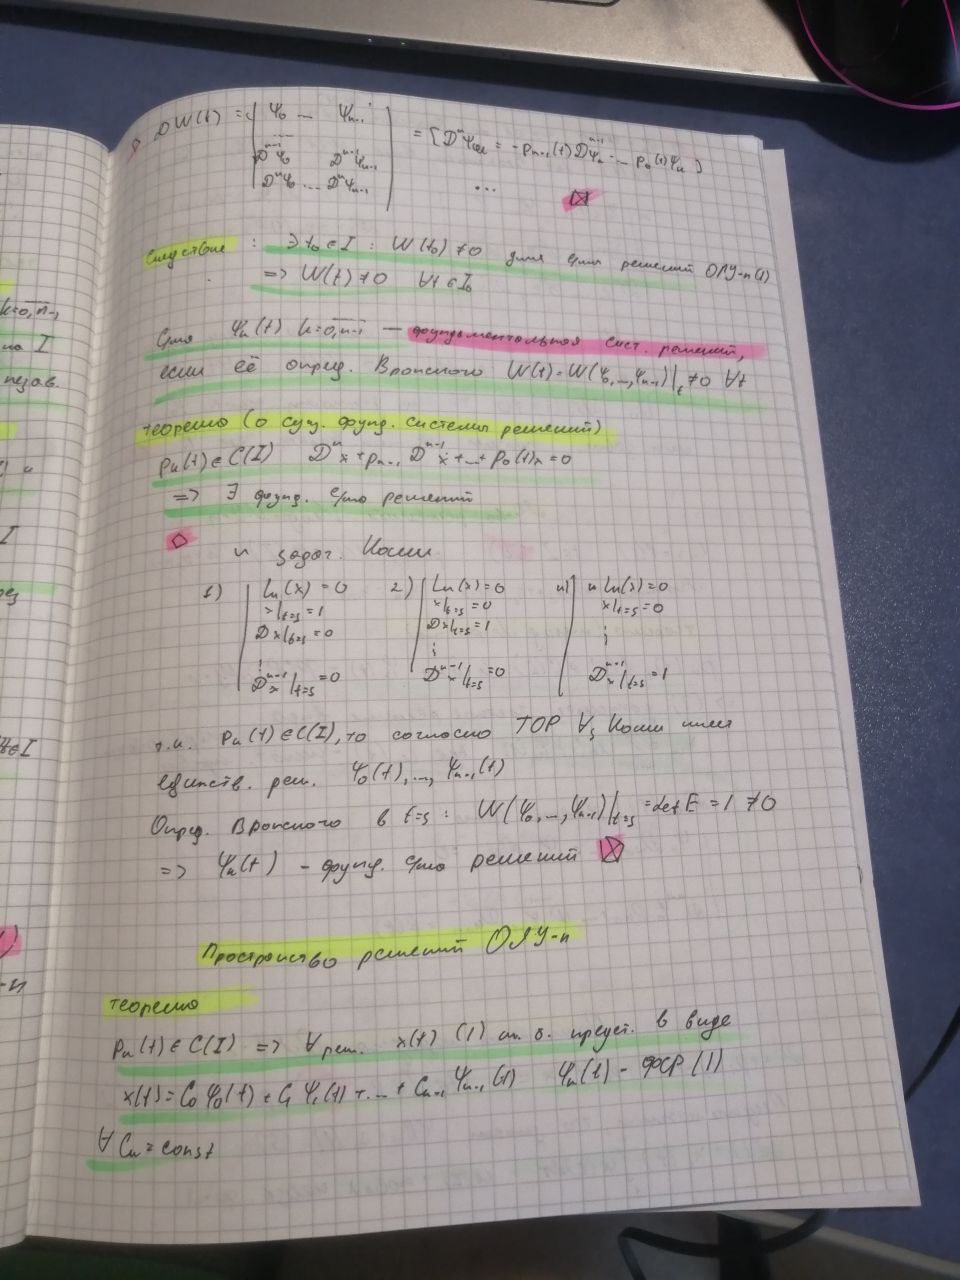 DW(t) = | ψ₀ ... ψₙ₋₁
...
Dⁿ⁻¹ψ₀ Dⁿ⁻¹ψₙ₋₁
Dⁿψ₀ ... Dⁿψₙ₋₁ | = [Dⁿψₖ = -pₙ₋₁(t)Dⁿ⁻¹ψₖ - ... p₀(t)ψₖ]
...
Следствие : ∃ t₀ ∈ I : W(t₀) ≠ 0 для с/мы решений ОЛУ-n (1)
=> W(t) ≠ 0 ∀t ∈ I
С/ма ψₖ(t) k=0,n-1 — фундаментальная сист. решений,
если её опред. Вронского W(t)=W(ψ₀,...,ψₙ₋₁)|ₜ ≠0 ∀t
теорема (о сущ. фунд. системы решений)
pₖ(t) ∈ C(I) Dⁿx + pₙ₋₁ Dⁿ⁻¹x + ... + p₀(t)x = 0
=> ∃ фунд. с/ма решений
n задач. Коши
1) Lₙ(x) = 0 2) Lₙ(x) = 0 n) Lₙ(x) = 0
x|t=s = 1 x|t=s = 0 x|t=s = 0
Dx|t=s = 0 Dx|t=s = 1 ⋮
⋮ ⋮
Dⁿ⁻¹x|t=s = 0 Dⁿ⁻¹x|t=s = 0 Dⁿ⁻¹x|t=s = 1
т.к. pₖ(t) ∈ C(I), то согласно ТОР ∀з Коши имеет
единств. реш. ψ₀(t),..., ψₙ₋₁(t)
Опред. Вронского в t=s : W(ψ₀,...,ψₙ₋₁)|t=s = det E = 1 ≠ 0
=> ψₖ(t) - фунд. с/ма решений
Пространство решений ОЛУ-n
теорема
pₖ(t) ∈ C(I) => ∀ реш. x(t) (1) м. б. предст. в виде
x(t) = C₀ψ₀(t) + C₁ψ₁(t) + ... + Cₙ₋₁ψₙ₋₁(t) ψₖ(t) - ФСР (1)
∀ Cₖ = const